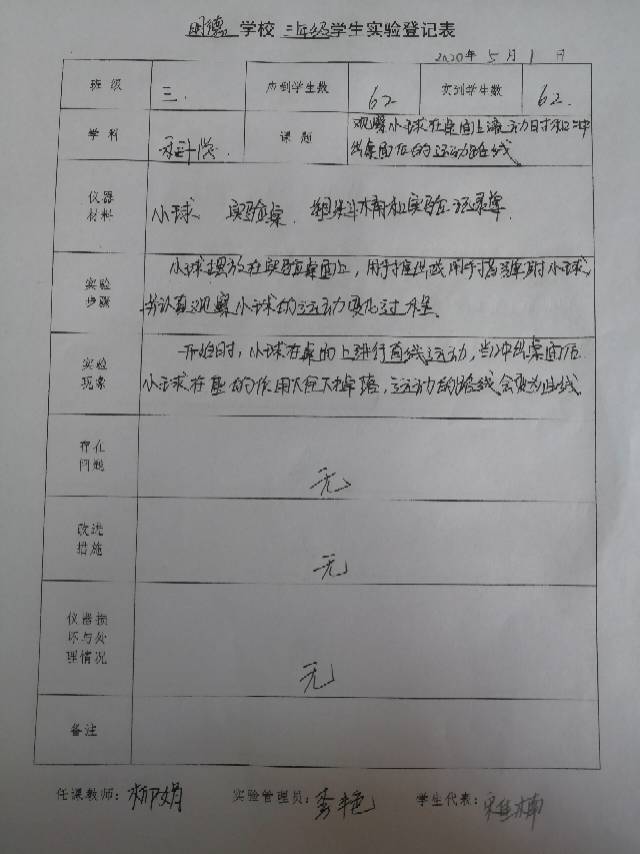 明德 学校 三年级学生实验登记表
2020年 5月 1日
班级 三. 应到学生数 62 实到学生数 62.
学科 科学. 课题 观察小球在桌面上滚动时和冲
出桌面后的运动路线
仪器
材料
小球 实验桌
实验记录单
实验
步骤
小球摆放在实验桌面上,用手
并认真观察小球的运动变化过程.
实验
现象
一开始时,小球在桌面上进行直线运动,当冲出桌面后
小球在 的作用下会下掉落,运动的路线会变为曲线
存在
问题
无
改进
措施
无
仪器损
坏与处
理情况
无
备注
任课教师: 柳娟 实验管理员: 学生代表: